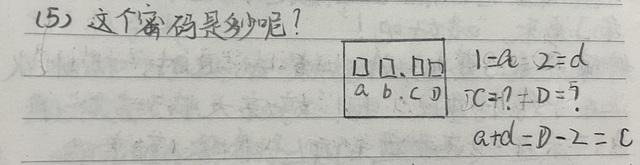 (5) 这个密码是多少呢?
□ □. □□
a b. C D
1=a 2=d
C=? D=?
a+d=D-2=C